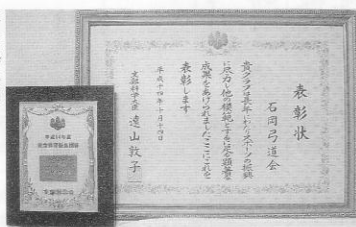 表彰状
石岡弓道会
貴クラブは長年にわたりスポーツの振興
に尽力し他の模範とするに足る顕著な
成果をあげられましたここにこれを
表彰します
平成十四年十月十四日
文部科学大臣 遠山敦子
平成14年度
文部科学省